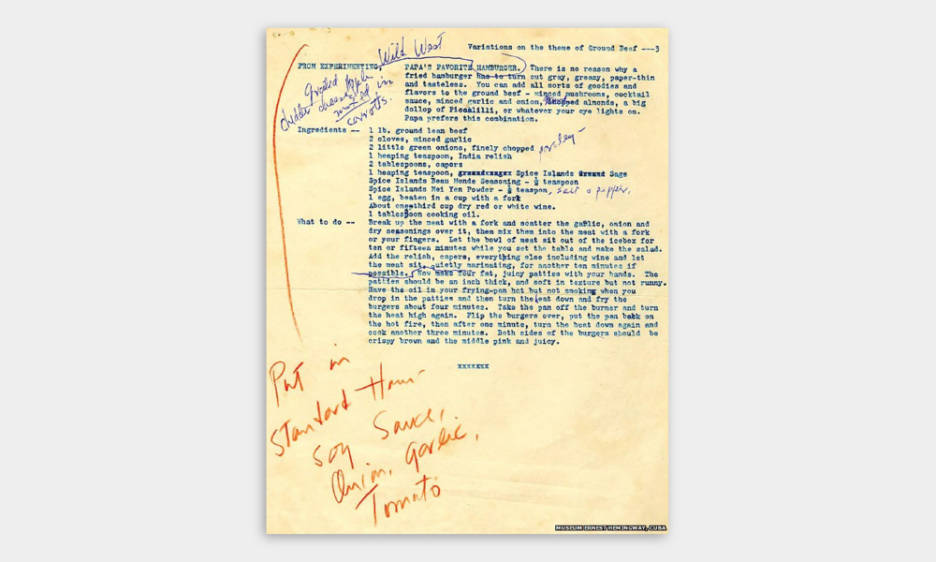 Variations on the theme of Ground Beef ---3
Wild West
FROM EXPERIMENTING, PAPA'S FAVORITE HAMBURGER. There is no reason why a
fried hamburger has to turn out gray, greasy, paper-thin
and tasteless. You can add all sorts of goodies and
flavors to the ground beef - minced mushrooms, cocktail
sauce, minced garlic and onion, chopped almonds, a big
dollop of Piccadilli, or whatever your eye lights on.
Papa prefers this combination.
grated apple
cheddar cheese
mixed in
carrots.
Ingredients -- 1 lb. ground lean beef
2 cloves, minced garlic
2 little green onions, finely chopped parsley
1 heaping teaspoon, India relish
2 tablespoons, capers
1 heaping teaspoon, Spice Islands Sage
Spice Islands Beau Monde Seasoning - ½ teaspoon
Spice Islands Mei Yen Powder - ½ teaspoon, salt & pepper.
1 egg, beaten in a cup with a fork
About one-third cup dry red or white wine.
1 tablespoon cooking oil.
What to do -- Break up the meat with a fork and scatter the garlic, onion and
dry seasonings over it, then mix them into the meat with a fork
or your fingers. Let the bowl of meat sit out of the icebox for
ten or fifteen minutes while you set the table and make the salad.
Add the relish, capers, everything else including wine and let
the meat sit, quietly marinating, for another ten minutes if
possible. Now make four fat, juicy patties with your hands. The
patties should be an inch thick, and soft in texture but not runny.
Have the oil in your frying-pan hot but not smoking when you
drop in the patties and then turn the heat down and fry the
burgers about four minutes. Take the pan off the burner and turn
the heat high again. Flip the burgers over, put the pan back on
the hot fire, then after one minute, turn the heat down again and
cook another three minutes. Both sides of the burgers should be
crispy brown and the middle pink and juicy.
xxxxxxx
Put in
Standard Ham-
Soy Sauce,
Onion, garlic,
Tomato
MUSEUM ERNEST HEMINGWAY, CUBA